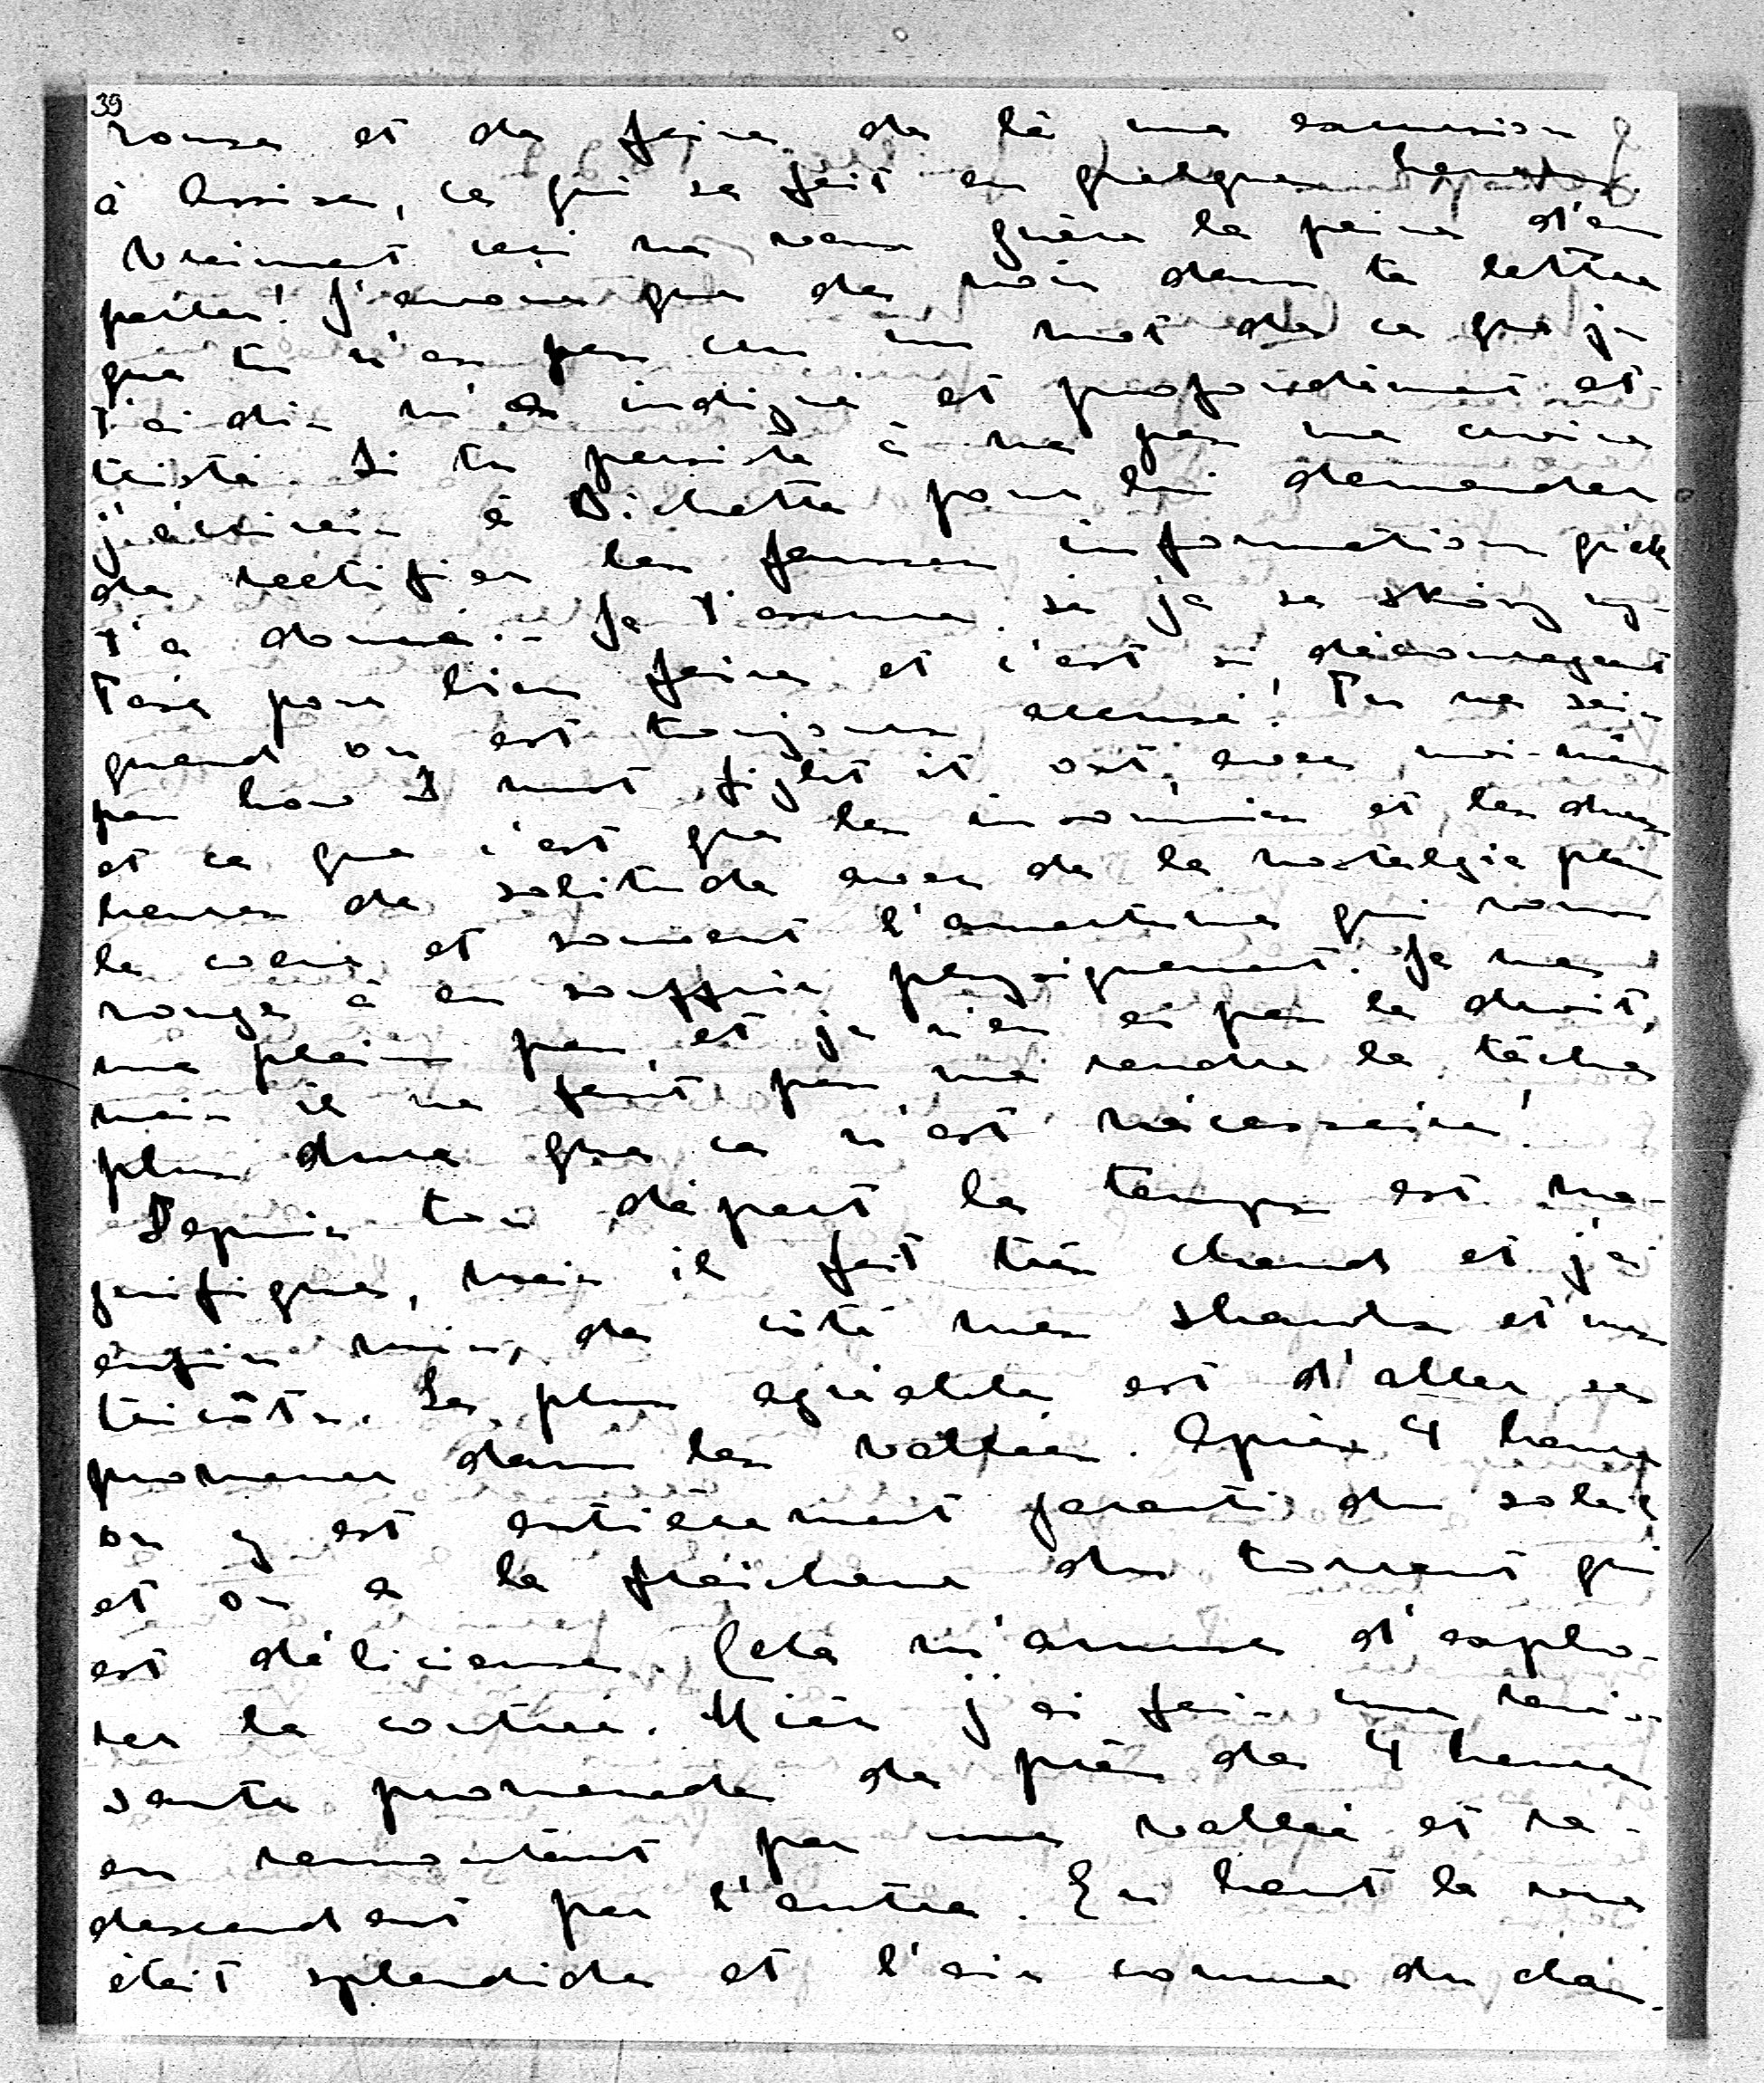 39
rouse et de faire de là une excursion
à Assise, ce qui se fait en quelques heures.
Vraiment ceci ne vaux guère la peine d'en
parler! J'avoue que de voir dans ta lettre
que tu n'as pas cru un mot de ce que je
t'ai di- m'a indigné et profondément at-
tristé. Si tu persiste à ne pas me croire
j'écrirais à Dichette pour lui demander
de rectifier les fausses information qu'elle
t'a donné.- Je t'assure, że ja se skórę wy-
pour bien faire et c'est si décourageant
quand on est toujours accusé! Tu ne sais
pas how I must fight it out avec moi-même
et ce que c'est que les insomnies et les dures
heures de solitude avec de la nostalgie plein
le coeur et souvent l'amertume qui vous
ronge à en souffrir physiquement. Je ne
me plains pas, et je n'en ai pas le droit,
mais il ne faut pas me rendre la tâche
plus dure que ce n'est nécessaire!
Depuis ton départ le temps est ma-
gnifique, mais il fait très chaud et j'ai
enfin mis de côté mes shawls et mes
tricots. Le plus agréable est d'aller se
promener dans les vallées. Après 4 heures
on y est entièrement garanti du soleil
et on a la fraîcheur du torrent qui
est délicieuse. Cela m'amuse d'explo-
rer la contrée. Hier j'ai fai- une ravis-
sante promenade de près de 4 heures
en remontant par une vallée et re-
descendant par l'autre. En haut la vue
était splendide et l'air comme du cham-